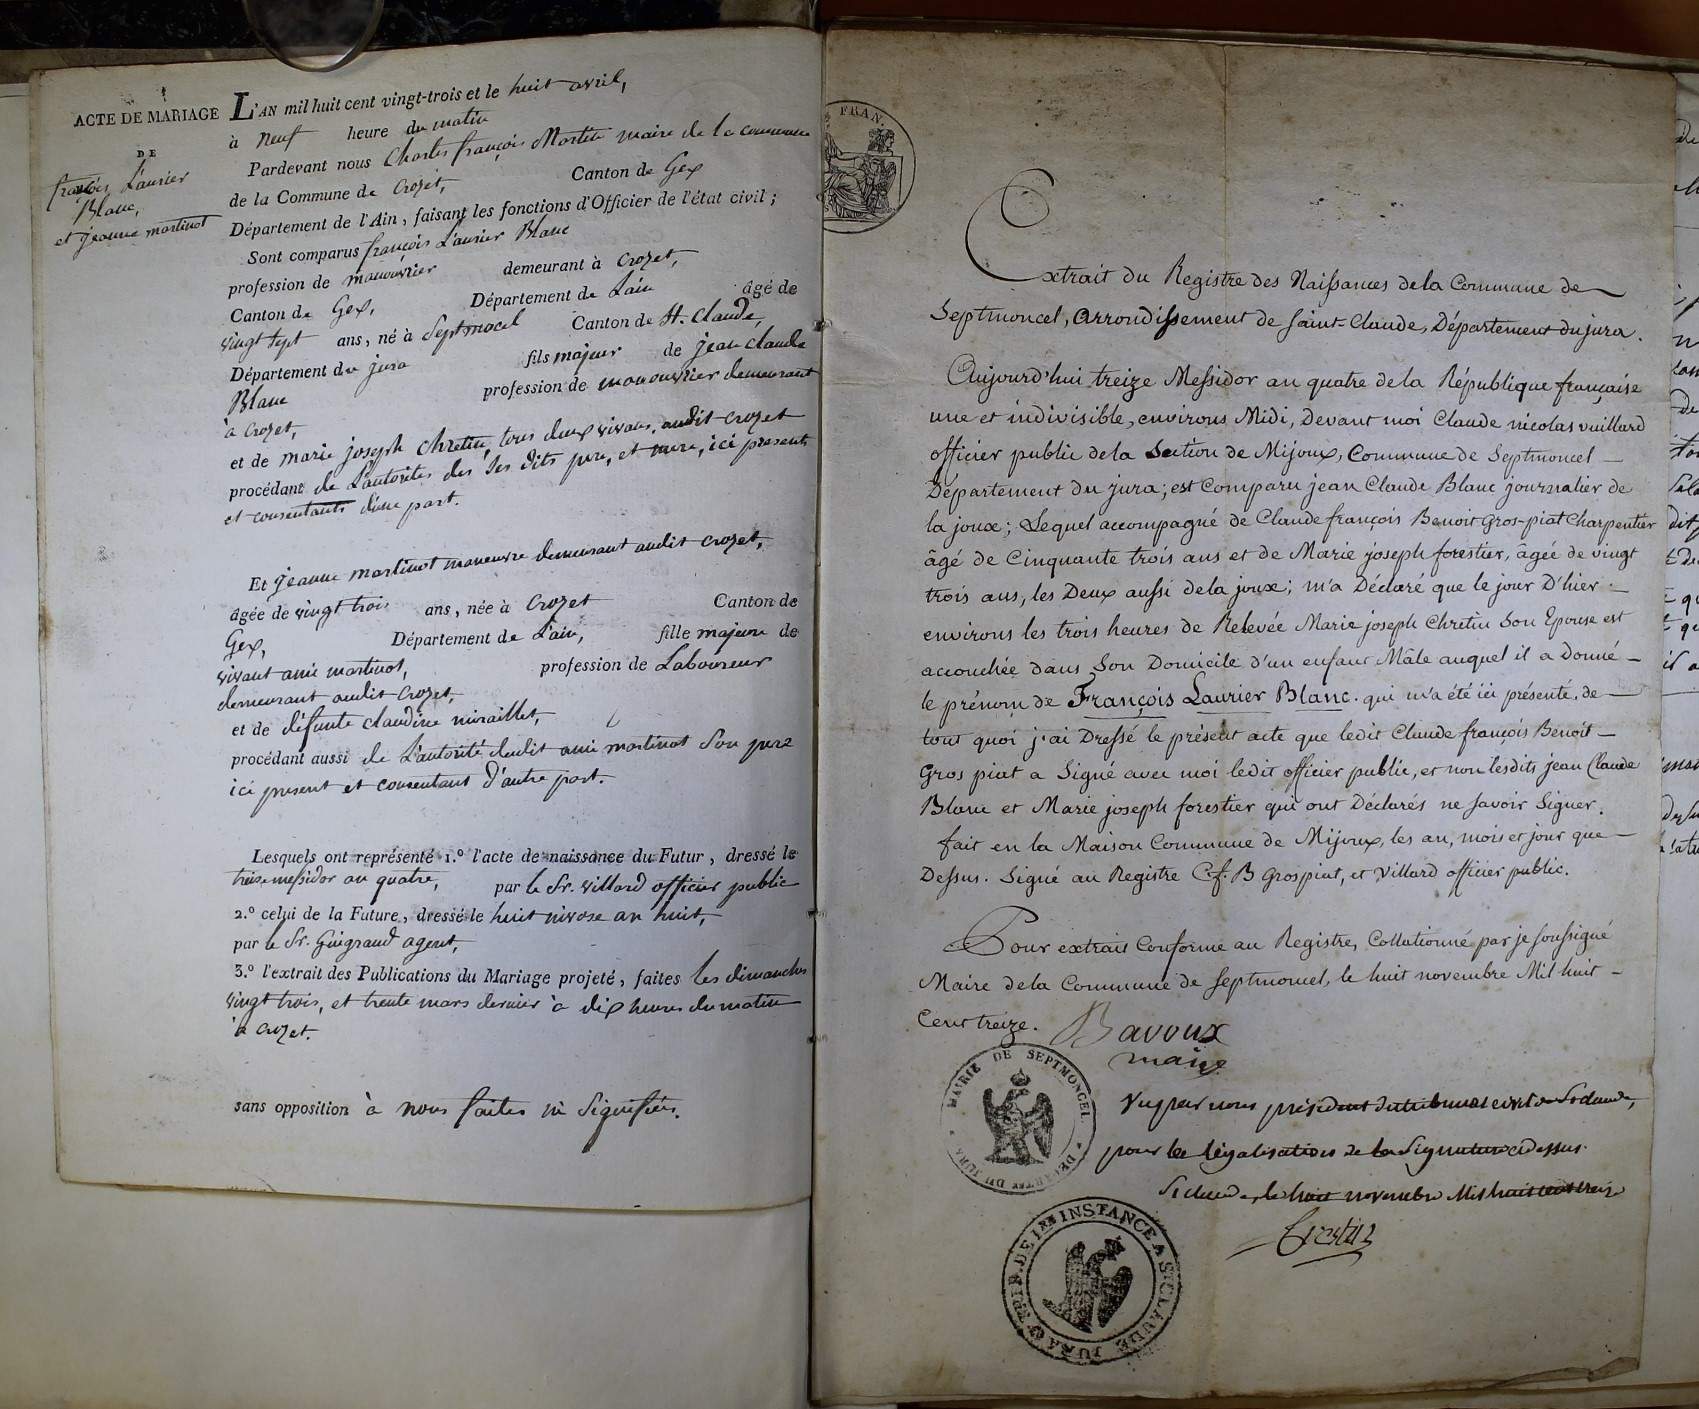 ACTE DE MARIAGE
DE
françois Laurier
Blanc,
et jeanne martinot
L'AN mil huit cent vingt-trois et le huit avril,
à neuf heure du matin
Pardevant nous Charles françois Martin maire de la commune
de la Commune de Crozet, Canton de Gex
Département de l'Ain, faisant les fonctions d'Officier de l'état civil;
Sont comparus françois Laurier Blanc
profession de manouvrier demeurant à Crozet,
Canton de Gex, Département de Lain âgé de
vingt sept ans, né à Septmocel Canton de St. Claude,
Département du jura fils majeur de jean claude
Blanc profession de manouvrier demeurant
à Crozet,
et de marie joseph chretin, tous deux vivans, audit crozet
procédant de Lautorités des ses dits pere, et mere, ici presents
et consentants d'une part.
Et jeanne martinot maneuvre demeurant audit crozet,
âgée de vingt trois ans, née à Crozet Canton de
Gex, Département de Lain, fille majeure de
vivant ami martinot, profession de Laboureur
demeurant audit Crozet,
et de défunte claudine miraillet,
procédant aussi de L'autorité dudit ami martinot Son pere
ici present et consentant d'autre part.
Lesquels ont représenté 1.º l'acte de naissance du Futur, dressé le
treize messidor an quatre, par le Sr. villard officier public
2.º celui de la Future, dressé le huit nivose an huit,
par le Sr. Guigraud agent,
3.º l'extrait des Publications du Mariage projeté, faites les dimanches
vingt trois, et trente mars dernier à dix heures du matin
à crozet.
sans opposition à nous faites ni Signifiées.
FRAN.
Extrait du Registre des Naissances de la Commune de
Septmoncel, Arrondissement de Saint-Claude, Département du jura.
Aujourd'hui treize Messidor an quatre de la République française
une et indivisible, environs Midi, Devant moi Claude nicolas vuillard
officier public de la Section de Mijoux, Commune de Septmoncel
Département du jura; est Comparu jean Claude Blanc journalier de
la joux; Lequel accompagné de Claude françois Benoit Gros-piat Charpentier
âgé de Cinquante trois ans et de Marie joseph forestier, âgée de vingt
trois ans, les Deux aussi de la joux; m'a Déclaré que le jour D'hier
environs les trois heures de Relevée Marie joseph Chretin Son Epouse est
accouchée dans Son Domicile d'un enfant Mâle auquel il a Donné
le prénom de François Laurier Blanc. qui m'a été ici présenté. de
tout quoi j'ai Dressé le présent acte que ledit Claude françois Benoit
Gros piat a Signé avec moi ledit officier public, et non lesdits jean Claude
Blanc et Marie joseph forestier qui ont Déclarés ne Savoir Signer.
fait en la Maison Commune de Mijoux, les an, mois et jour que
Dessus. Signé au Registre C. f. B Grospiat, et Villard officier public.
Pour extrait Conforme au Registre, Collationné par je soussigné
Maire de la Commune de Septmoncel, le huit novembre Mil huit
Cent treize. Bavoux
maire
MAIRIE DE SEPTMONCEL * DÉPARTEM.T DU JURA *
Vu par nous président du tribunal civil de St Claude,
pour la légalisation de la Signature ci dessus.
St claude, le huit novembre Mil huit cent treize
TRIB. DE 1RE INSTANCE A ST CLAUDE JURA